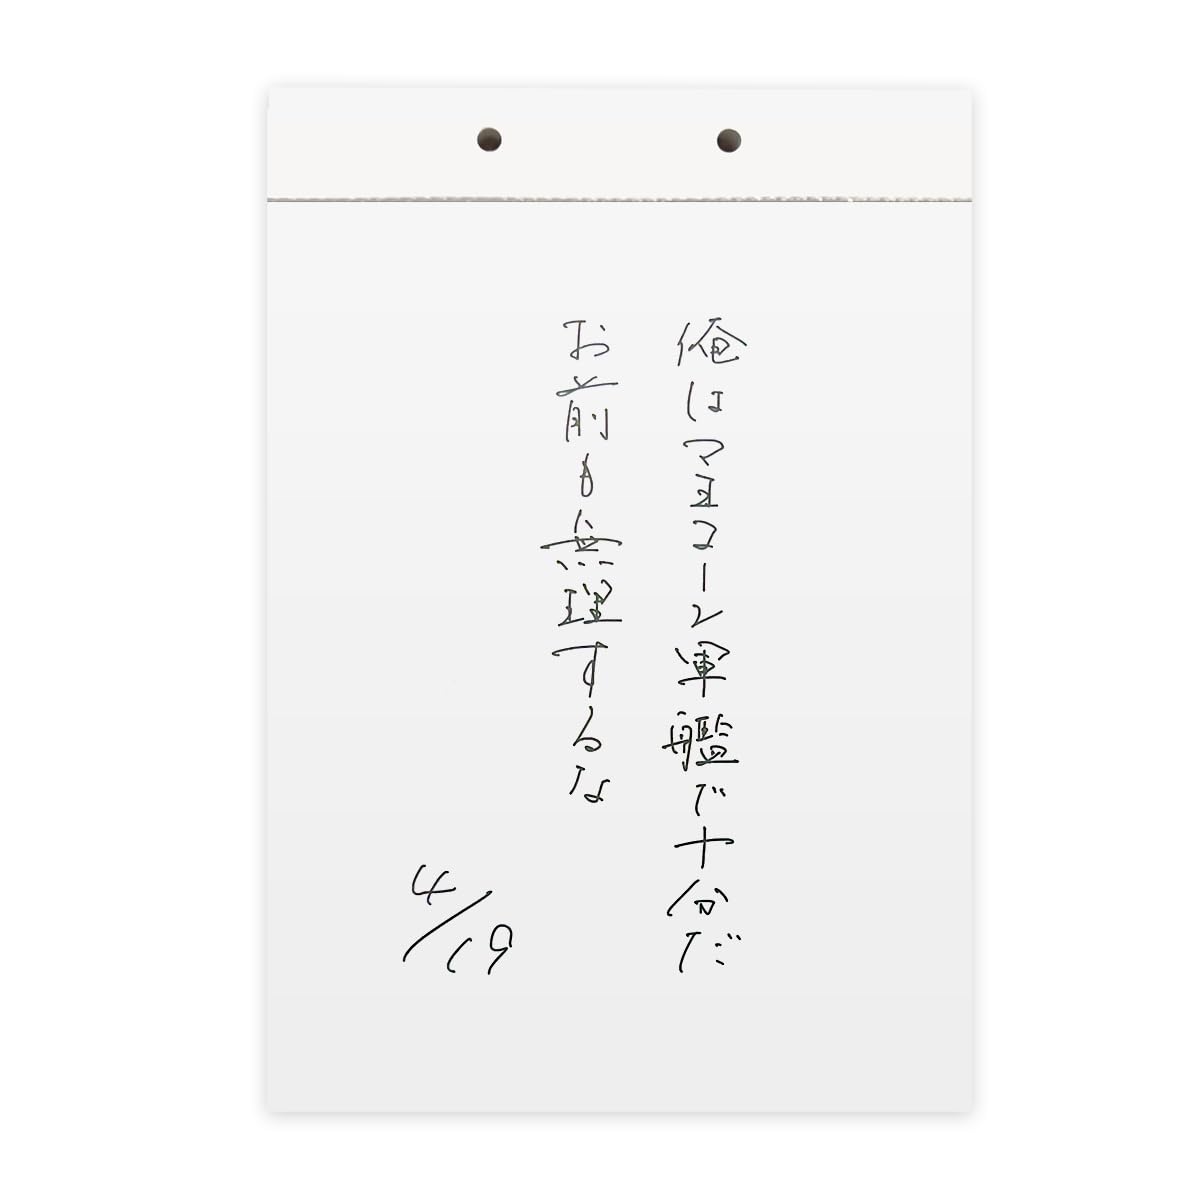 俺はマヨコーン軍艦で十分だ
お前も無理するな
4/19